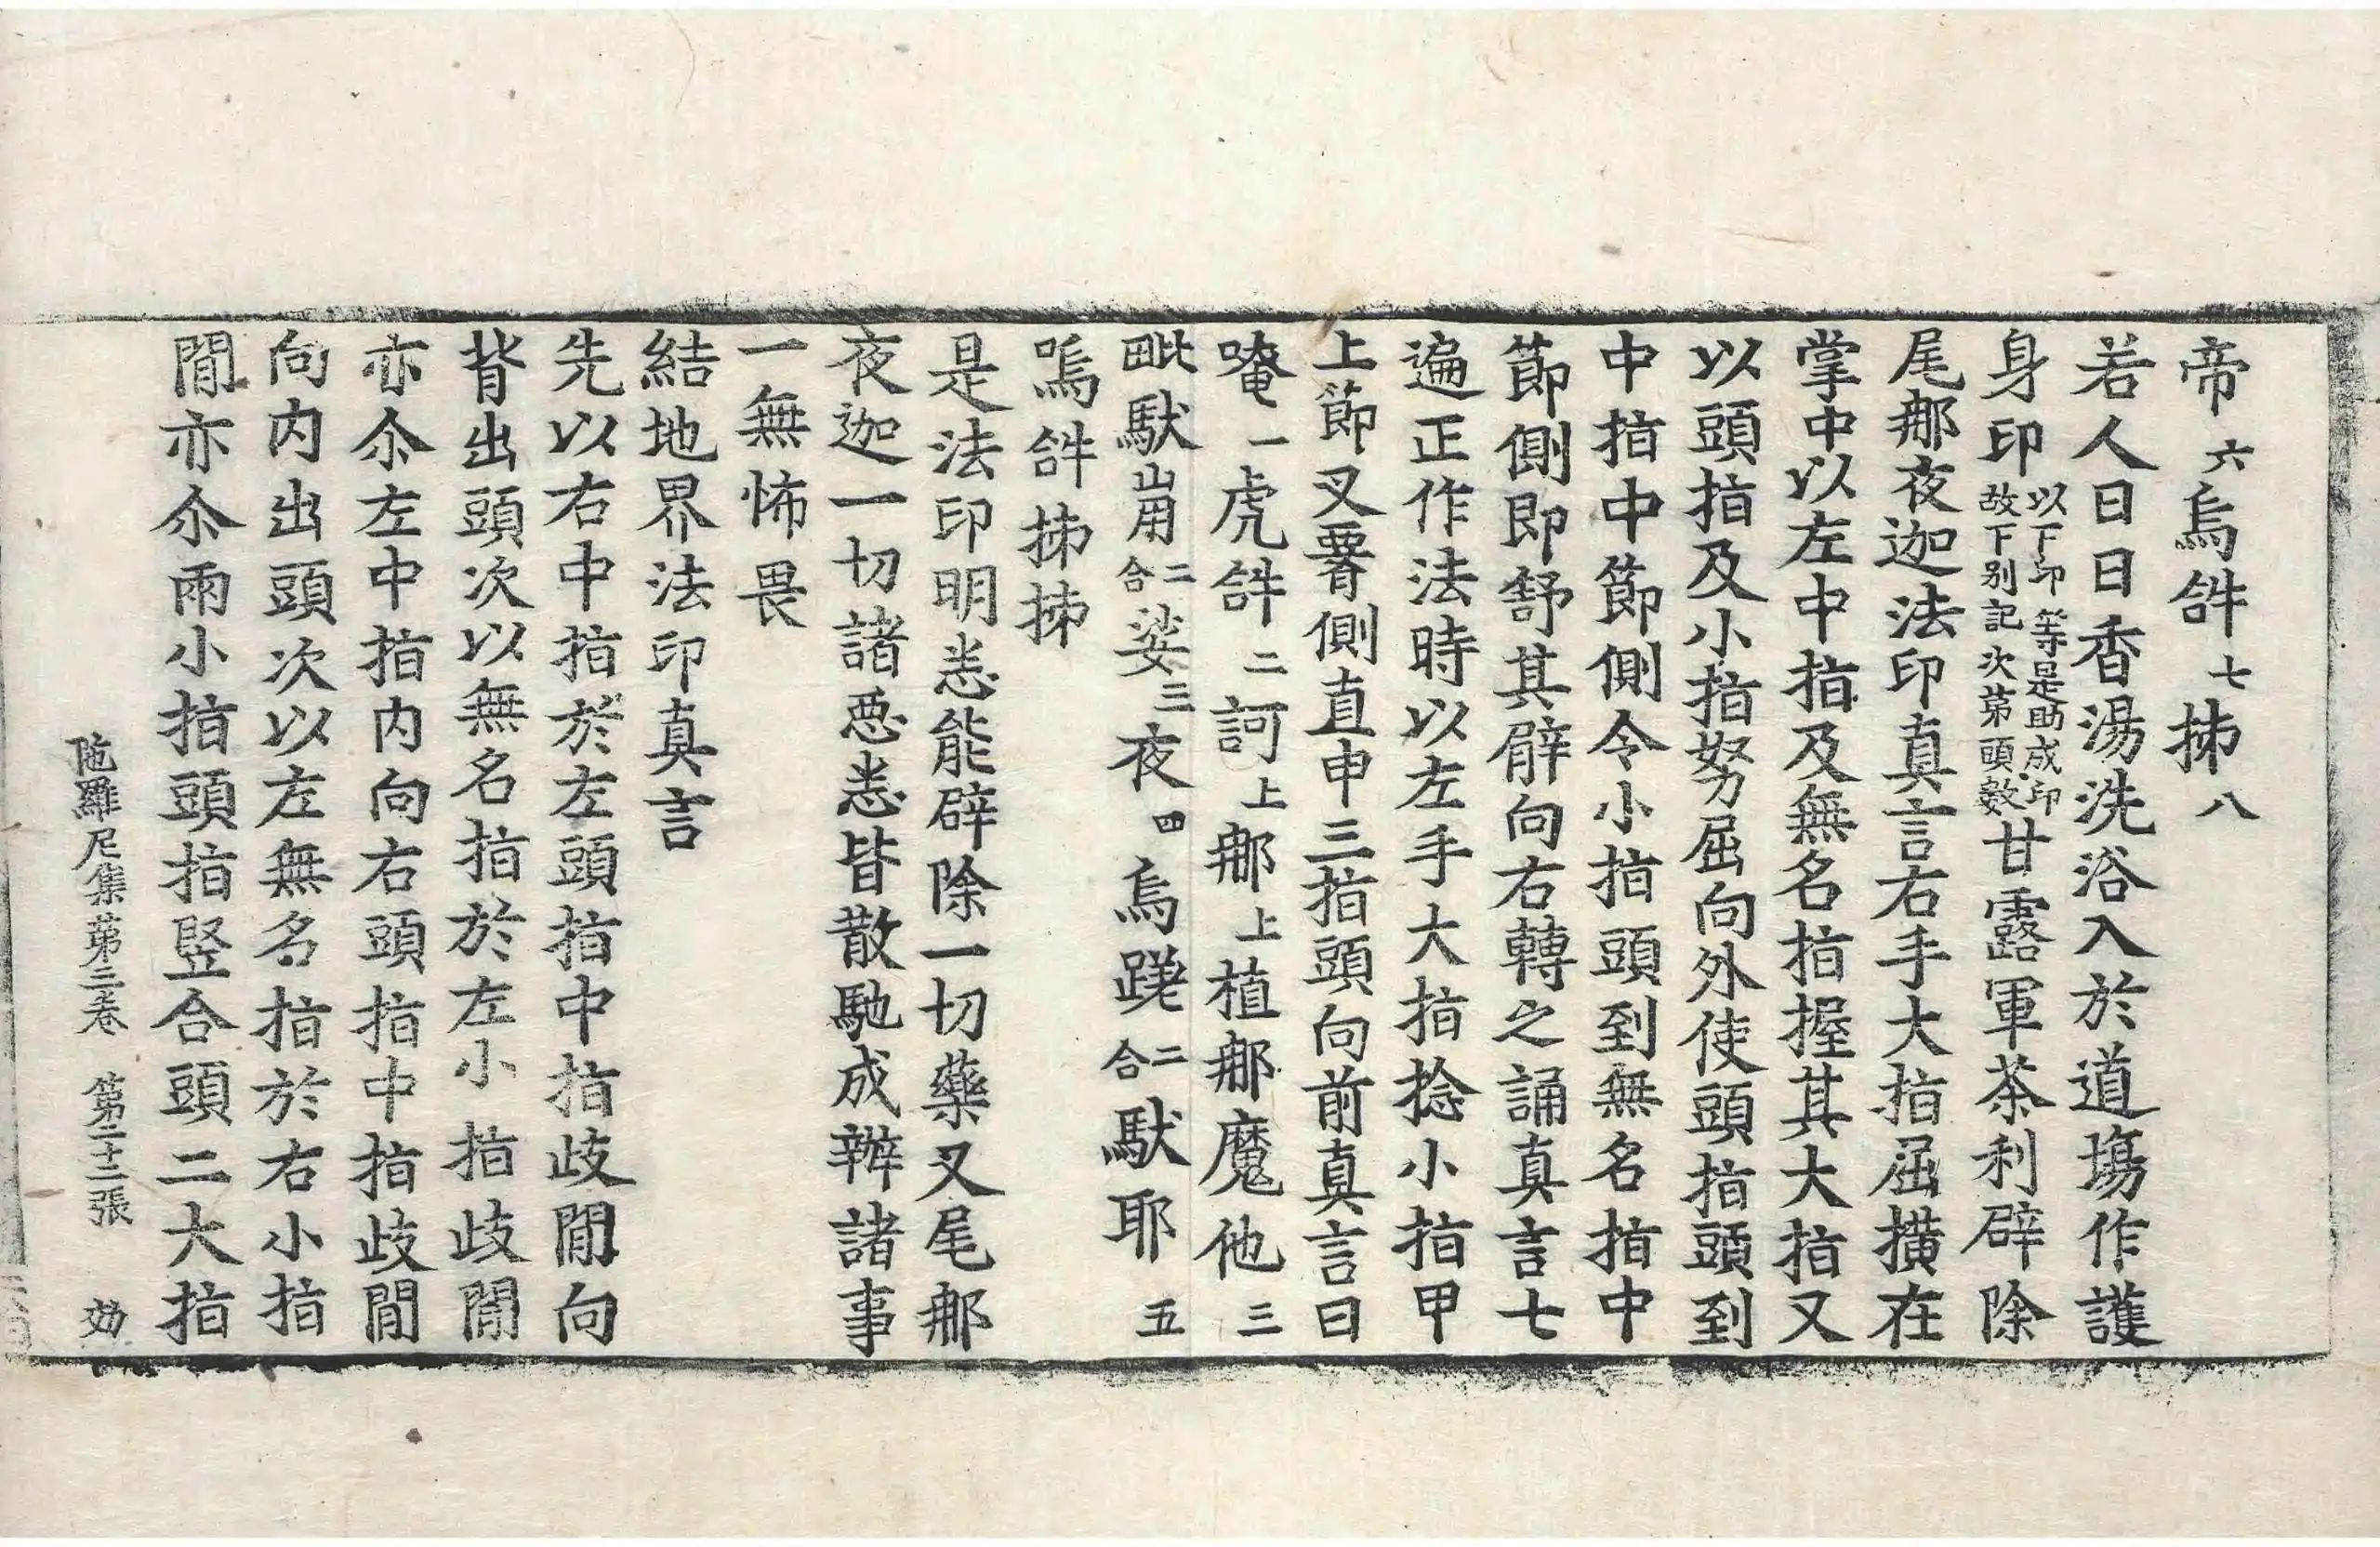 帝六烏𤙖七抪八
若人日日香湯洗浴入於道場作護
身印以下印等是助成印故下別記次第頭數甘露軍茶利辟除
尾那夜迦法印真言右手大指屈橫在
掌中以左中指及無名指握其大指又
以頭指及小指努屈向外使頭指頭到
中指中節側令小指頭到無名指中
節側即舒其臂向右轉之誦真言七
遍正作法時以左手大指捻小指甲
上節叉署側直申三指頭向前真言曰
唵一虎𤙖二訶上那上植那魔他三
毗馱崩二合娑三夜四烏蹉二合馱耶五
嗚𤙖抪抪
是法印明悉能辟除一切藥叉尾那
夜迦一切諸惡悉皆散馳成辦諸事
一無怖畏
結地界法印真言
先以右中指於左頭指中指歧閒向
背出頭次以無名指於左小指歧閒
亦尒左中指內向右頭指中指歧閒
向內出頭次以左無名指於右小指
閒亦尒兩小指頭指竪合頭二大指
陁羅尼集第三卷 第二十二張 効